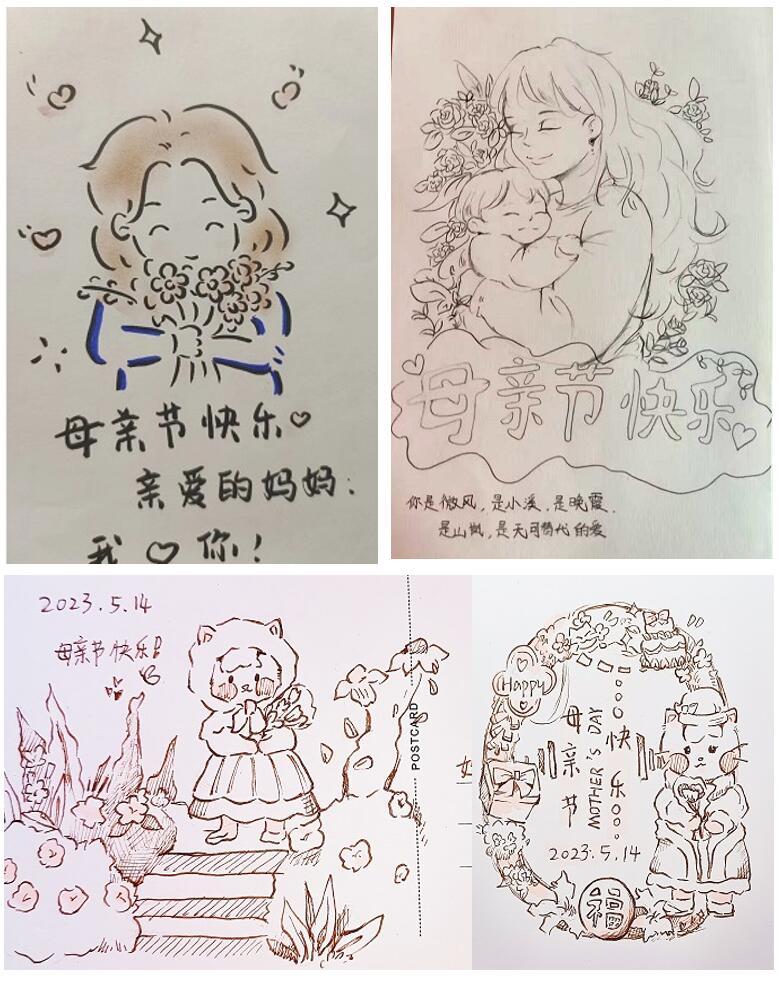 母亲节快乐♡
亲爱的妈妈.
我♡你!
母亲节快乐
你是微风,是小溪,是晚霞,
是山岚,是无可替代的爱
2023.5.14
母亲节快乐!
POSTCARD
Happy
母亲节
MOTHER'S DAY
快乐
2023.5.14
福